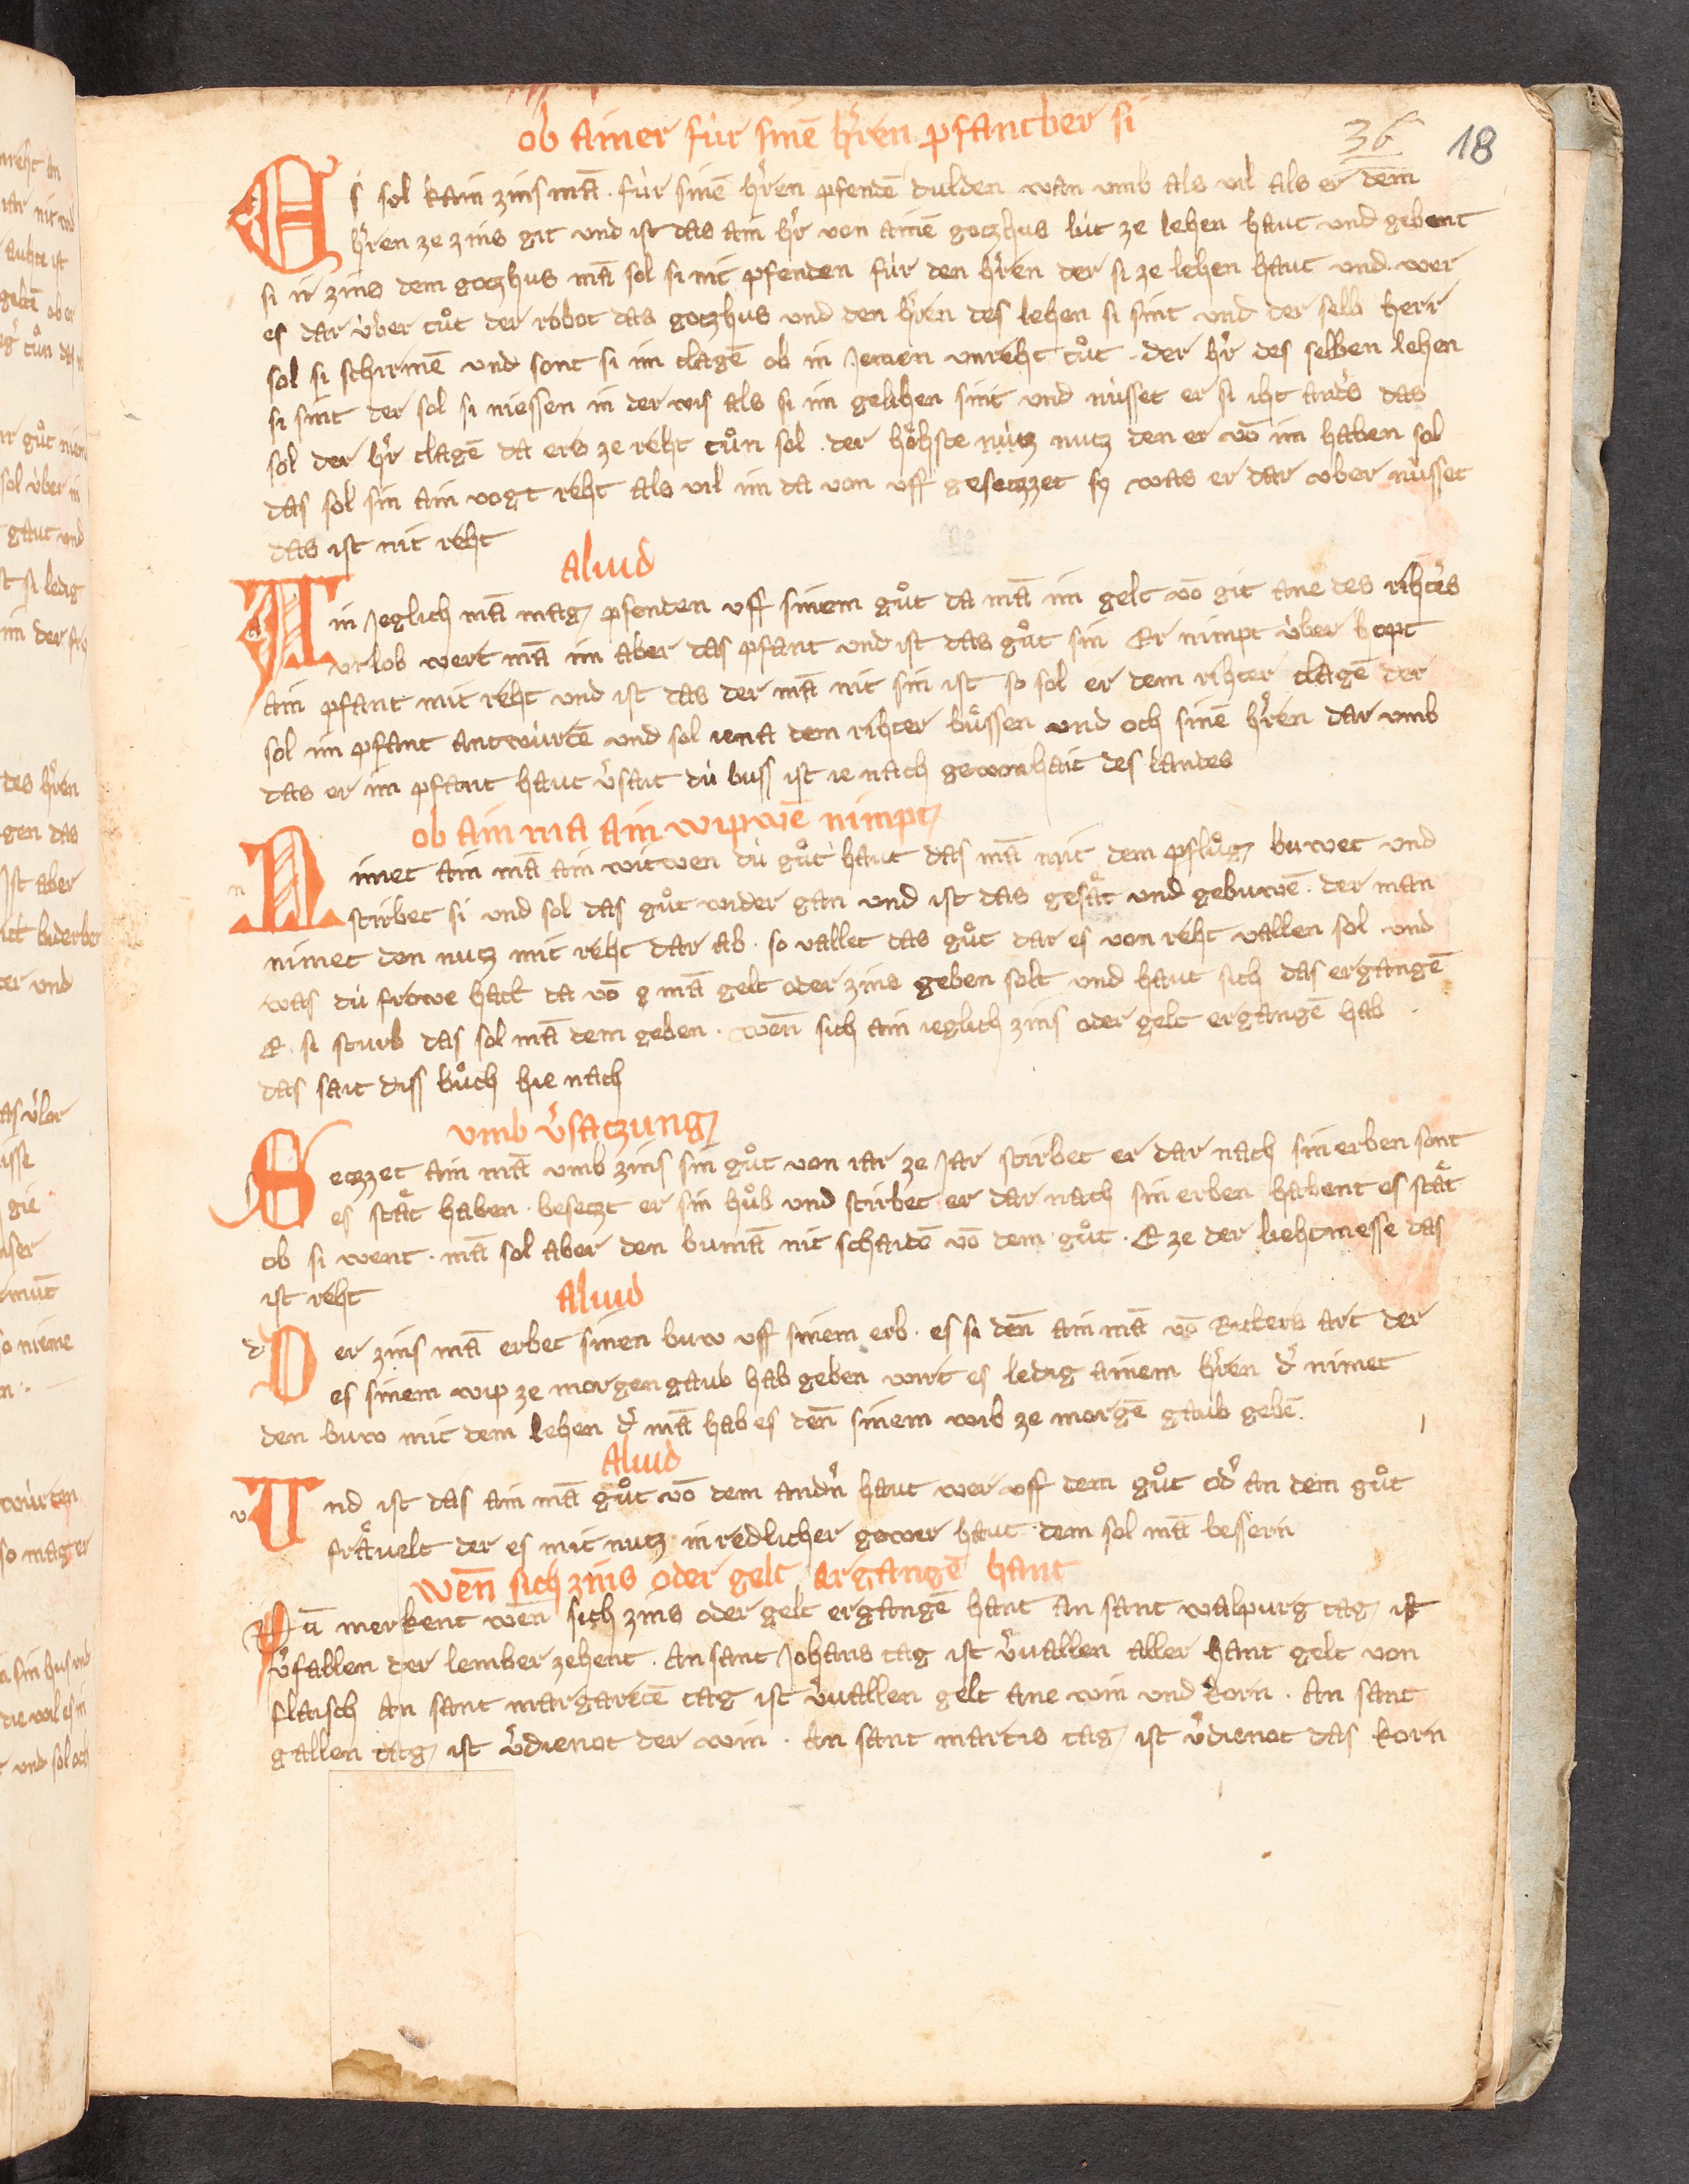 ob ainer für sinē hˀren pfantber si
36 18
Es sol kain zins mā · für sinē hˀren pfendē dulden wan vmb als vil als er dem
hˀren ze zins git vnd ist das ain hˀr von ainē gotzhus lüt ze lehen haut vnd gebent
si ir zins dem gotzhus mā sol si nit pfenden für den hˀren der si ze lehen haut vnd wer
es dar über tůt der robot das gotzhus vnd den hˀren des lehen si sint vnd der selb herr
sol si schirmē vnd sont si im clagē ob in Jemen vnreht tůt · der hˀr des selben lehen
si sint der sol si niessen in der wis als si im gelihen sint vnd nüsset er si iht andˀs das
sol der hˀr clagē da ers ze reht tůn sol · der höhste nütz nutz den er vō im haben sol
das sol sin ain vogt reht als vil im da von vff gesetzzet sy was er dar vber nüsset
das ist nit reht
Aliud
a
Ain Jeglich mā mag pfenden vff sinem gůt da mā im gelt vō git ane des rihtˀs
vrlob wert mā im aber das pfant vnd ist das gůt sin Er nimpt über hopt
ain pfant mit reht vnd ist das der mā nit sin ist so sol er dem rihter clagē der
sol im pfant antwürtē vnd sol iena dem rihter büssen vnd och sinē hˀren dar vmb
das er im pfant haut vˀsait dü buss ist ie nach gewonhait des landes
ob ain ma ain wipwē nimpt
n
Nimet ain mā ain witwen dü gůt haut das mā mit dem pflůg buwet vnd
stirbet si vnd sol das gůt wider gan vnd ist das gesät vnd gebuwē · der man
nimet den nutz mit reht dar ab · so vallet das gůt dar es von reht vallen sol vnd
was dü frowe hatt da vō mā gelt oder zins geben solt vnd haut sich das ergangē
E si sturb das sol mā dem geben · wen̄ sich ain ieglich zins oder gelt ergangē hab
das sait diss bůch hie nach
vmb vˀsatzung
Setzzet ain mā vmb zins sin gůt von iar ze Jar stirbet er dar nach sin erben sont
es stät haben · besetzt er sin hůb vnd stirbet er dar nach sin erben habent es stät
ob si went · mā sol aber den bumā nit schaidē vō dem gůt · E ze der liehtmesse das
ist reht
Aliud
d
Der zins mā erbet sinen buw vff sinem erb · es si den̄ ain mā vō Ritters art der
es sinem wip ze morgengaub hab geben wirt es ledig ainem hˀren dˀ nimet
den buw mit dem lehen dˀ mā hab es den̄ sinem wib ze morgē gaub gebē
Aliud
v
Vnd ist das ain mā gůt vō dem andˀn haut wer vff dem gůt odˀ an dem gůt
frävelt der es mit nutz in redlicher gewer haut dem sol mā bessern
wen̄ sich zins oder gelt ergangē hant
Nū merkent wen̄ sich zins oder gelt ergangē hant an sant walpurg tag ist
vˀfallen der lember zehent · an sant Johans tag ist vˀvallen aller hant gelt von
flaisch an sant margaretē tag ist vˀvallen gelt ane win vnd korn · An sant
gallen tag ist vˀdienot der win · An sant martis tag ist vˀdienot das korn